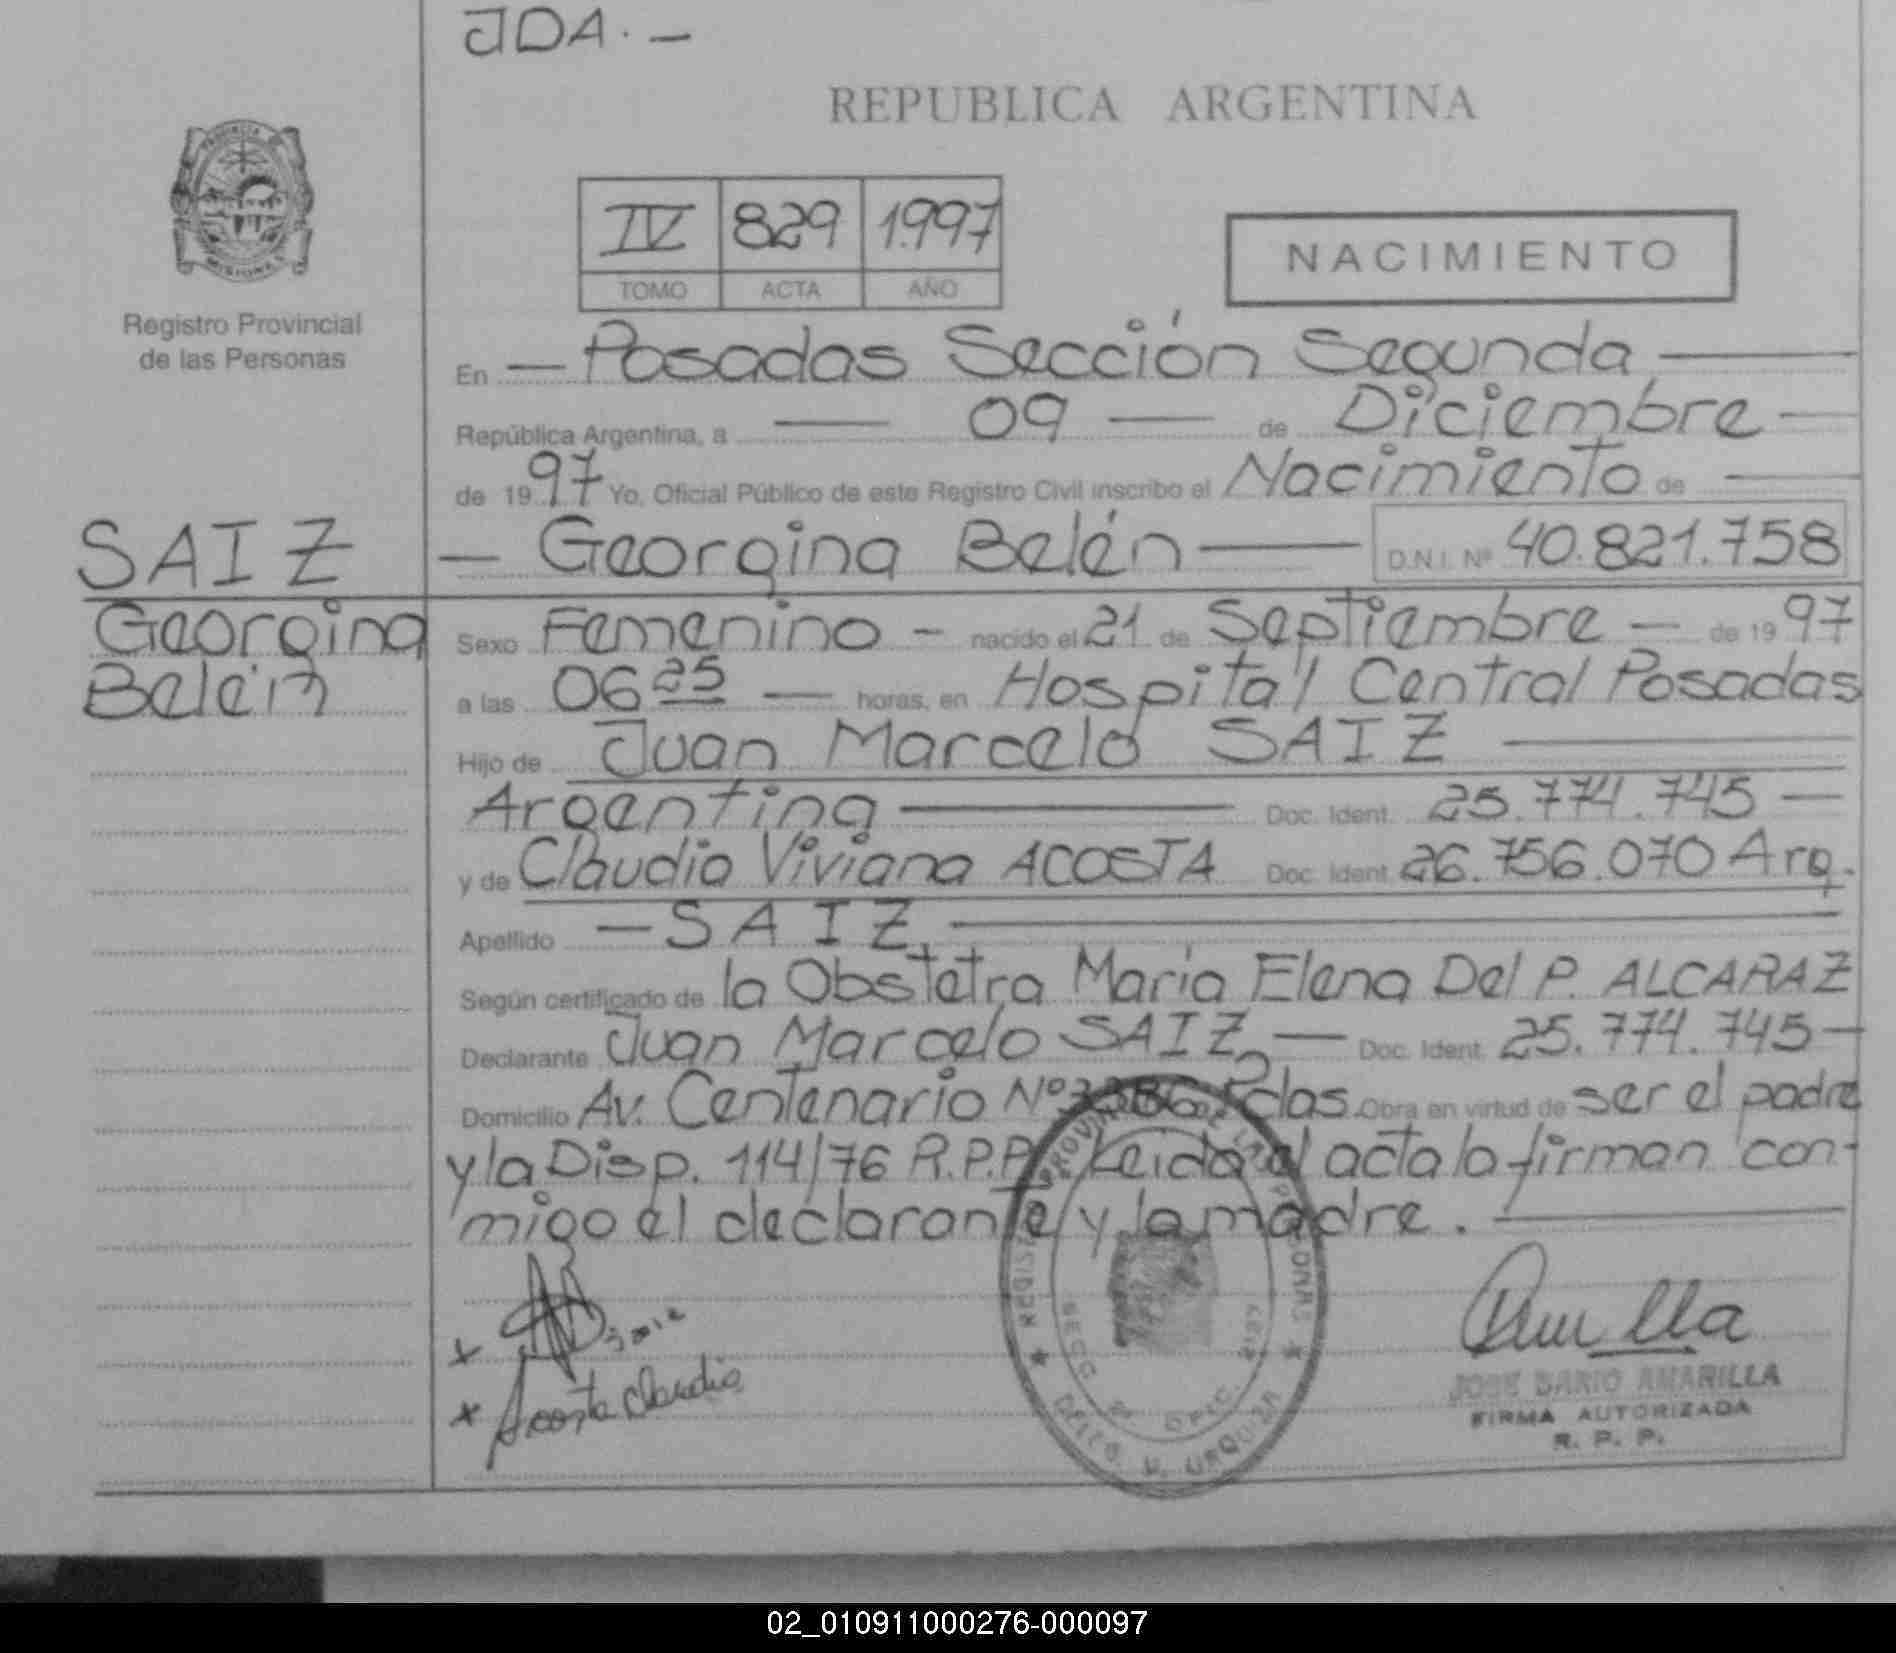 JDA. —
REPUBLICA ARGENTINA
PROVINCIA
MISIONES
Registro Provincial
de las Personas
IV 829 1.997
TOMO ACTA AÑO
NACIMIENTO
En — Posadas Sección Segunda —
República Argentina, a — 09 — de Diciembre —
de 1997 Yo, Oficial Público de este Registro Civil inscribo el Nacimiento de —
SAIZ
Georgina
Belén
— Georgina Belén — D.N.I. Nº 40.821.758
Sexo Femenino — nacido el 21 de Septiembre — de 1997
a las 06 25 — horas, en Hospital Central Posadas
Hijo de Juan Marcelo SAIZ —
Argentina — Doc. Ident. 25.774.745 —
y de Claudia Viviana ACOSTA Doc. Ident. 26.756.070 Arg.
Apellido — SAIZ —
Según certificado de la Obstetra María Elena Del P. ALCARAZ
Declarante Juan Marcelo SAIZ — Doc. Ident. 25.774.745 —
Domicilio Av. Centenario Nº Pdas. Obra en virtud de ser el padre
y la Disp. 114/76 R.P.P. Leida el acta la firman con-
migo el declarante y la madre. —
x Saiz
x Acosta Claudia
JOSE DARIO AMARILLA
FIRMA AUTORIZADA
R. P. P.
02_010911000276-000097